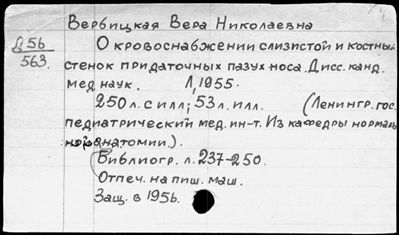 Вербицкая Вера Николаевна
Д 56
563.
О кровоснабжении слизистой и костных
стенок придаточных пазух носа. Дисс. канд.
мед наук. Л, 1955.
250 л. с илл; 53 л. илл. (Ленингр. гос.
педиатрический мед. ин-т. Из кафедры нормаль
ной анатомии.).
Библиогр. л. 237-250.
Отпеч. на пиш. маш.
Защ. в 1956.